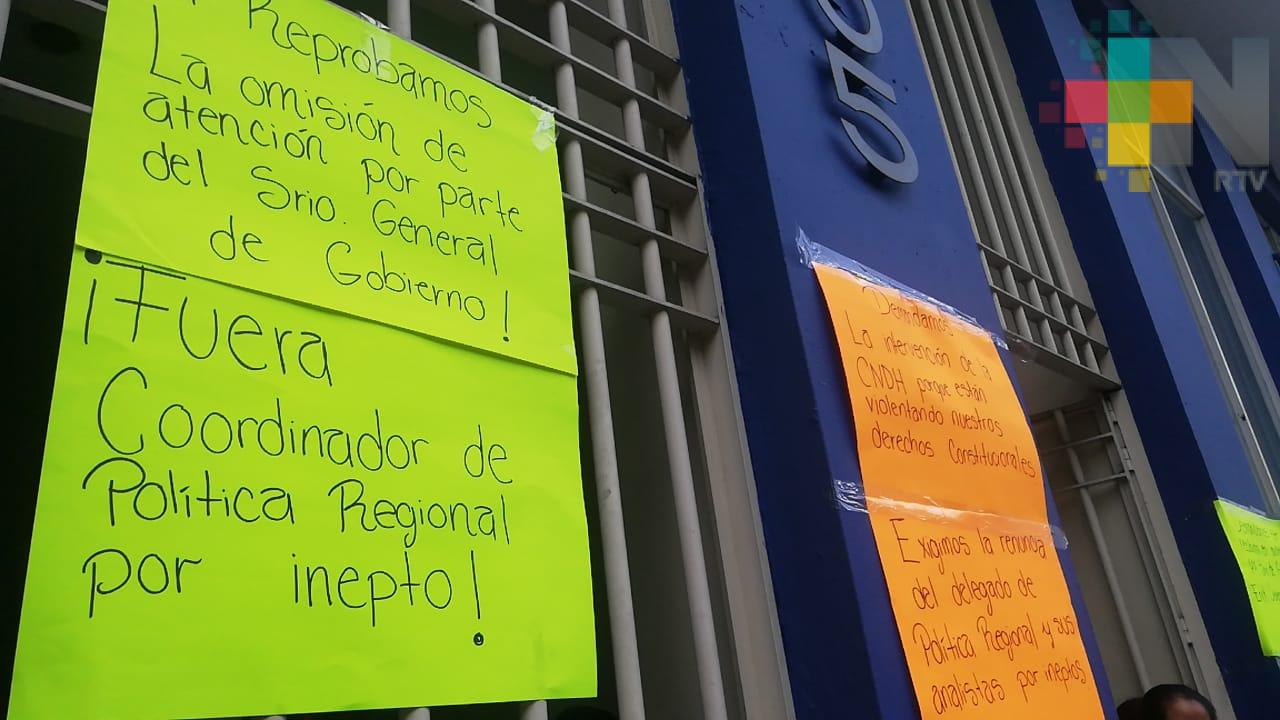 Reprobamos
La omisión de
atención por parte
del Srio. General
de Gobierno!
¡Fuera
Coordinador de
Política Regional
por inepto!
La intervención de la
CNDH, porque están
violentando nuestros
derechos Constitucionales
Exigimos la renuncia
del delegado de
Política Regional y sus
analistas por ineptos
N
RTV